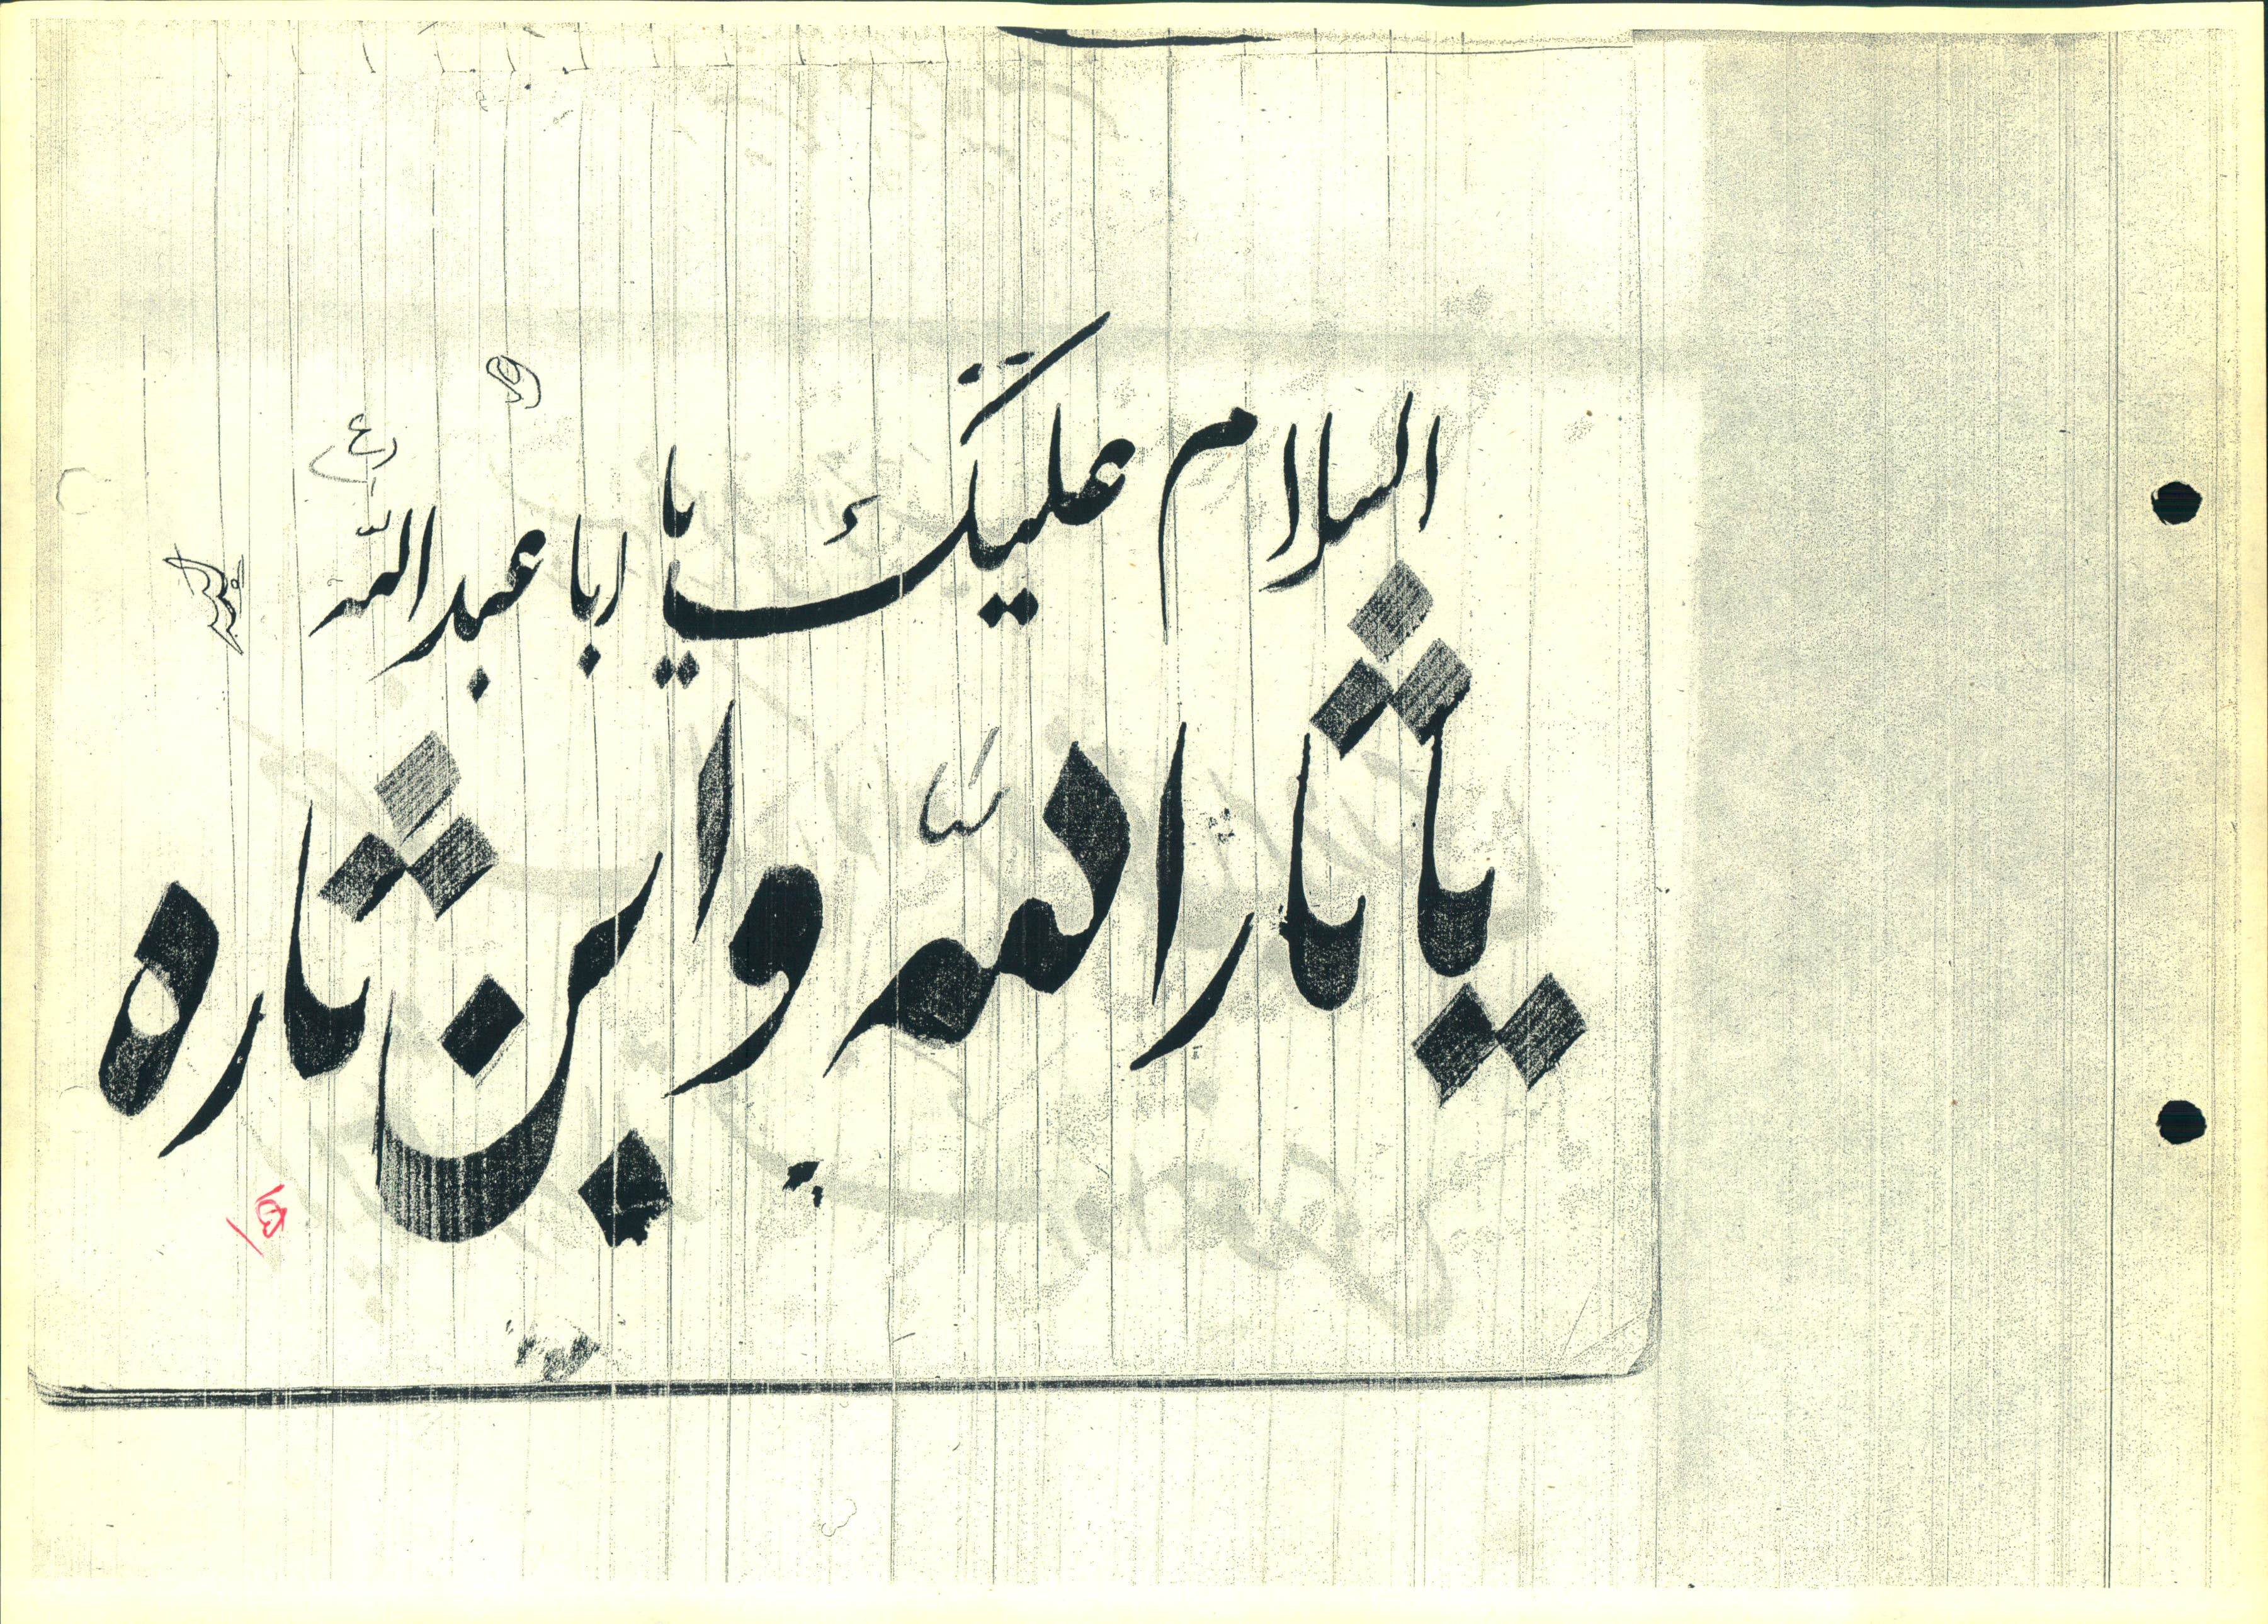 السلام علیک یا اباعبدالله
(ع)
یا ثارالله وابن ثاره